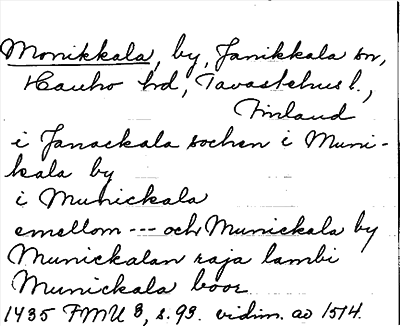 Monikkala, by, Janikkala sn,
Hauho hd, Tavastehus l.,
Finland
i Janackala sochen i Muni-
kala by
i Munickala
emellom --- och Munickala by
Munickalan raja lambi
Munickala boor
1435 FMU 3, s. 93. vidim. av 1514.